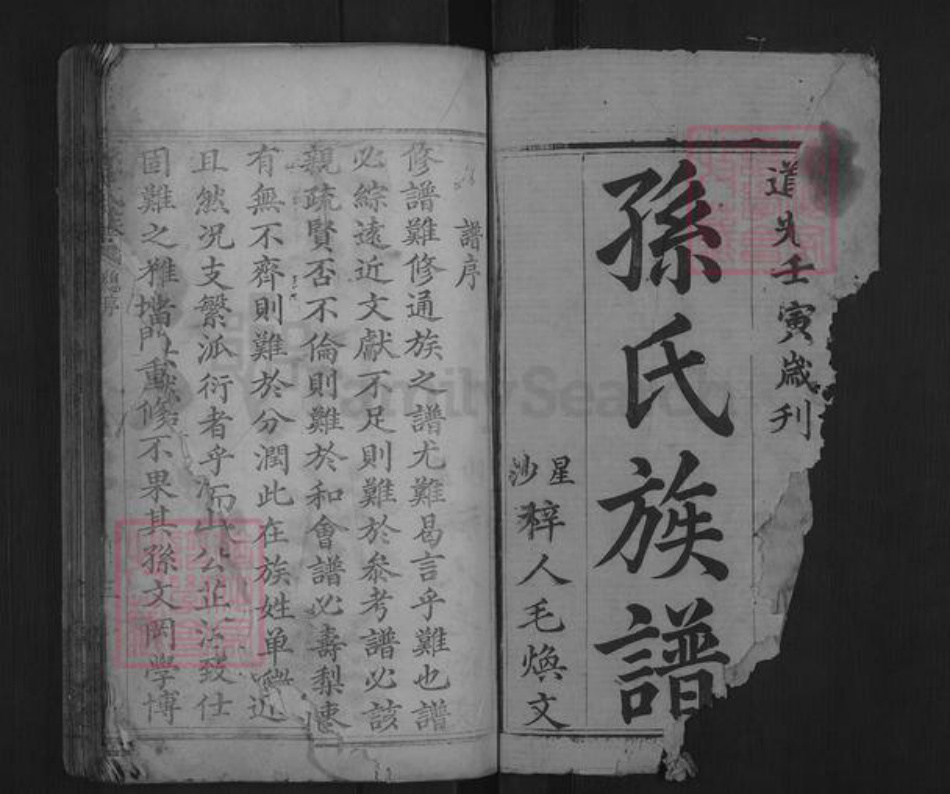 道光壬寅歲刊
孫氏族譜
星沙梓人毛煥文
譜序
修譜難修通族之譜尤難曷言乎難也譜
必綜遠近文獻不足則難於參考譜必該
親疏賢否不倫則難於和會譜必壽梨棗
有無不齊則難於分潤此在族姓單 近
且然况支繁派衍者乎 公芷 致仕
固難之 重修不果其孫文 學博
FamilySearch